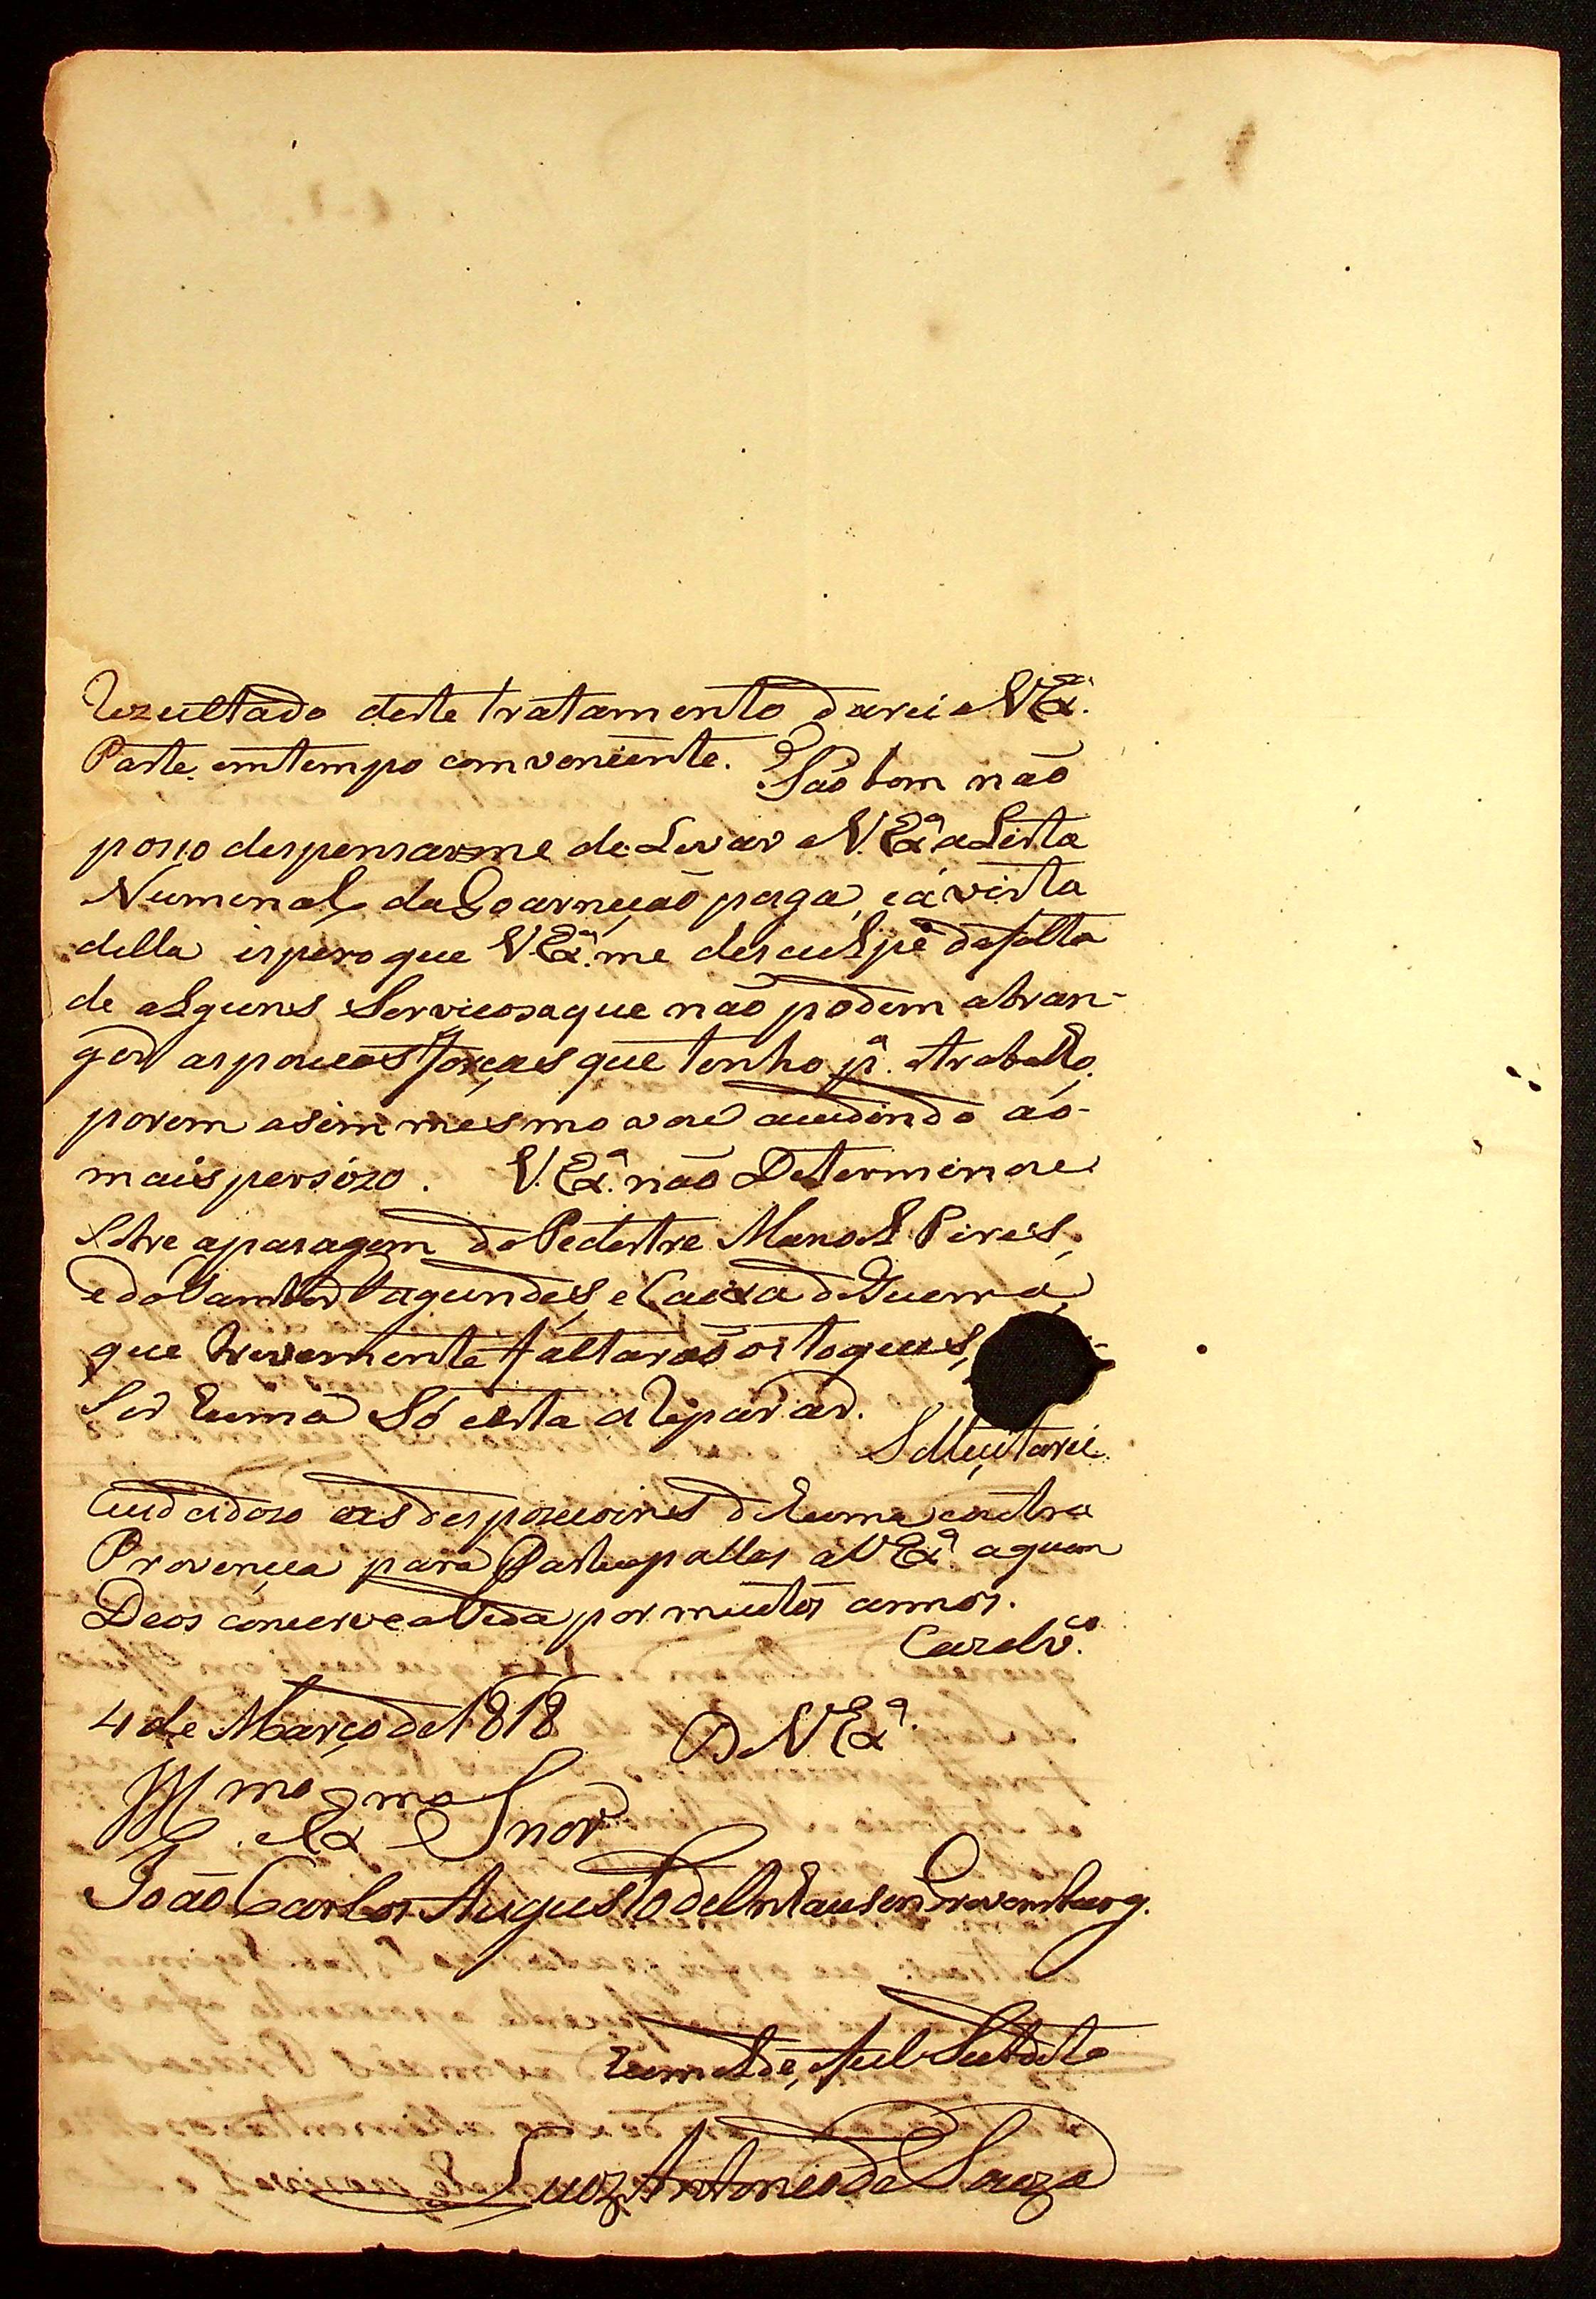 Rezultado deste tratamento darei a V Exª.
Parte emtempo comveniente.
Tão bom não
posso despensarme de Levar a V. Exª a Lista
Numeral da Goarnição paga, e á vista
della espero que V. Exª. me desculpe da falta
de alguns Servicos aque não podem abran-
ger as poucas forças que tenho pª. o trabalho,
porem asim mesmo vou acudindo ao
mais persizo. V. Exª. não Determinou
Sobre apasagem do Pedestre Manoel Pires,
e do Tambor Fagundes, e Caixa de Guerra,
que brevemente faltarão os toques,
Ser huma Só e esta a Reparar.
Solicitarei
Cuidadozo as despoziçoins de huma outra
Provinçia para Partecipallas a V. Exª aquem
Deos concerve a Vida por muitos annos.
Cazalvᶜᵒ.
4 de Março de 1818
D V. Exª.
Illᵐᵒ Exᵐᵒ Snor
João Carlos Augusto de
Humilde, Fiel Subdito
Luiz Antonio de Souza